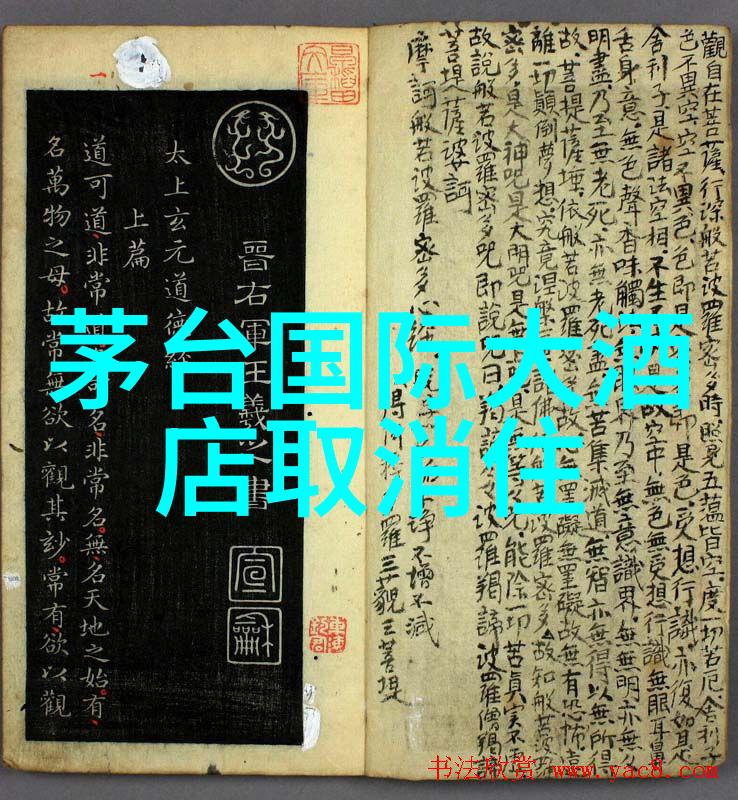 茅台国际大酒
店取消住
晋右軍王羲之書
宣龢
太上玄元道德經
上篇
道可道非常名非常名無名天地之始有
名萬物之母故常無欲以觀其妙常有欲以觀
觀自在菩薩行深般若波羅蜜多時照見五蘊皆空度一切苦厄舍利子
色不異空空不異色色即是即是色受想行識亦復如是
舍利子是諸法空相不生故空中無色無受想行識無眼耳鼻
舌身意無色聲香味觸無眼界乃至無意識界無無明亦無
明盡乃至無老死亦無老死盡無苦集滅道無智亦無得以無所得
故菩提薩埵依般若波羅蜜多故無罣礙無罣礙故無有恐怖遠
離一切顛倒夢想究竟涅槃諸佛般若波羅蜜多故知般若波羅
密多是大神咒是大明咒是無咒是無等咒能除一切苦真實不虛
故說般若波羅密多咒即說咒曰羯諦波羅羯諦波羅僧羯諦
菩提薩婆訶
得阿羅三藐三菩提
摩訶般若波羅密多心經淨不增不減
书法欣赏 www.yac8.com